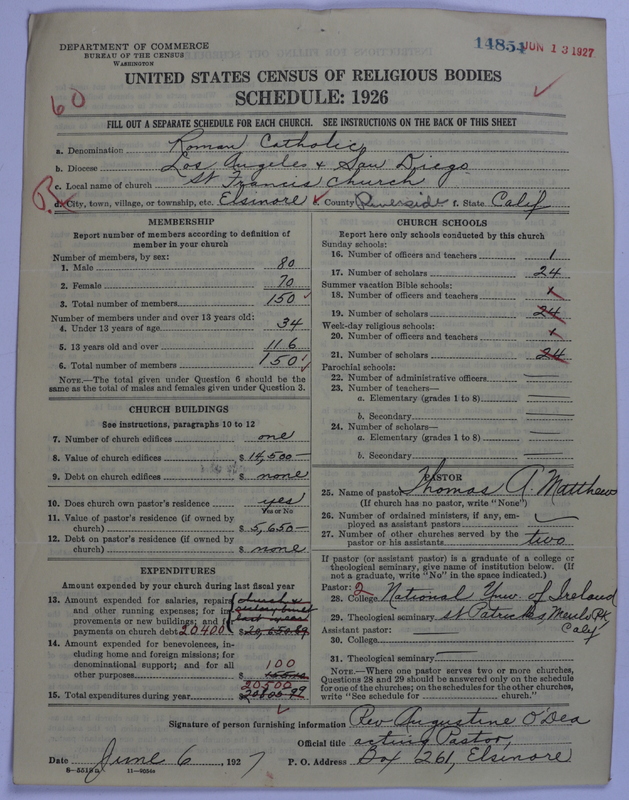 14854 JUN 13 1927
DEPARTMENT OF COMMERCE
BUREAU OF THE CENSUS
WASHINGTON
UNITED STATES CENSUS OF RELIGIOUS BODIES
SCHEDULE: 1926
60
FILL OUT A SEPARATE SCHEDULE FOR EACH CHURCH. SEE INSTRUCTIONS ON THE BACK OF THIS SHEET
a. Denomination Roman Catholic
b. Diocese Los Angeles & San Diego
c. Local name of church St Francis Church
d. City, town, village, or township, etc. Elsinore e. County Riverside f. State Calif
MEMBERSHIP
Report number of members according to definition of
member in your church
Number of members, by sex:
1. Male 80
2. Female 70
3. Total number of members 150
Number of members under and over 13 years old:
4. Under 13 years of age 34
5. 13 years old and over 116
6. Total number of members 150
NOTE.—The total given under Question 6 should be the
same as the total of males and females given under Question 3.
CHURCH BUILDINGS
See instructions, paragraphs 10 to 12
7. Number of church edifices one
8. Value of church edifices $ 14,500—
9. Debt on church edifices $ none
10. Does church own pastor's residence yes
Yes or No
11. Value of pastor's residence (if owned by
church) $ 5,650—
12. Debt on pastor's residence (if owned by
church) $ none
EXPENDITURES
Amount expended by your church during last fiscal year
13. Amount expended for salaries, repairs church &
and other running expenses; for im rectory built
provements or new buildings; and f last year
payments on church debt 20400 $
14. Amount expended for benevolences, in-
cluding home and foreign missions; for
denominational support; and for all 100
other purposes $
20500
15. Total expenditures during year $
CHURCH SCHOOLS
Report here only schools conducted by this church
Sunday schools:
16. Number of officers and teachers 1
17. Number of scholars 24
Summer vacation Bible schools:
18. Number of officers and teachers 1
19. Number of scholars 24
Week-day religious schools:
20. Number of officers and teachers 1
21. Number of scholars 24
Parochial schools:
22. Number of administrative officers
23. Number of teachers—
a. Elementary (grades 1 to 8)
b. Secondary
24. Number of scholars—
a. Elementary (grades 1 to 8)
b. Secondary
PASTOR
25. Name of pastor Thomas A. Matthew
(If church has no pastor, write "None")
26. Number of ordained ministers, if any, em-
ployed as assistant pastors
27. Number of other churches served by the
pastor or his assistants two
If pastor (or assistant pastor) is a graduate of a college or
theological seminary, give name of institution below. (If
not a graduate, write "No" in the space indicated.)
Pastor: 2
28. College National Univ. of Ireland
29. Theological seminary St Patricks, Menlo Pk
Calif
Assistant pastor:
30. College
31. Theological seminary
NOTE.—Where one pastor serves two or more churches,
Questions 28 and 29 should be answered only on the schedule
for one of the churches; on the schedules for the other churches,
write "See schedule for church."
Signature of person furnishing information Rev Augustine O'Dea
Official title acting Pastor,
Date June 6, 1927 P. O. Address Box 261, Elsinore
8-5519a 11-9054